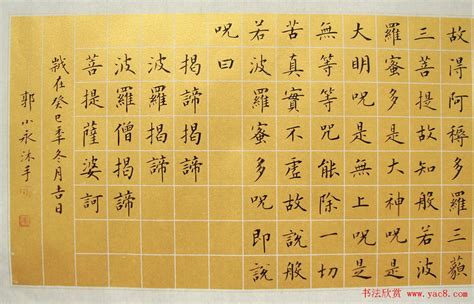 故得阿耨多羅三藐
三菩提故知般若波
羅蜜多是大神呪是
大明呪是無上呪是
無等等呪能除一切
苦真實不虛故說般
若波羅蜜多呪即說
呪曰
揭諦揭諦
波羅揭諦
波羅僧揭諦
菩提薩婆訶
歲在癸巳年冬月吉日
郭小永沐手
书法欣赏
www.yac8.com